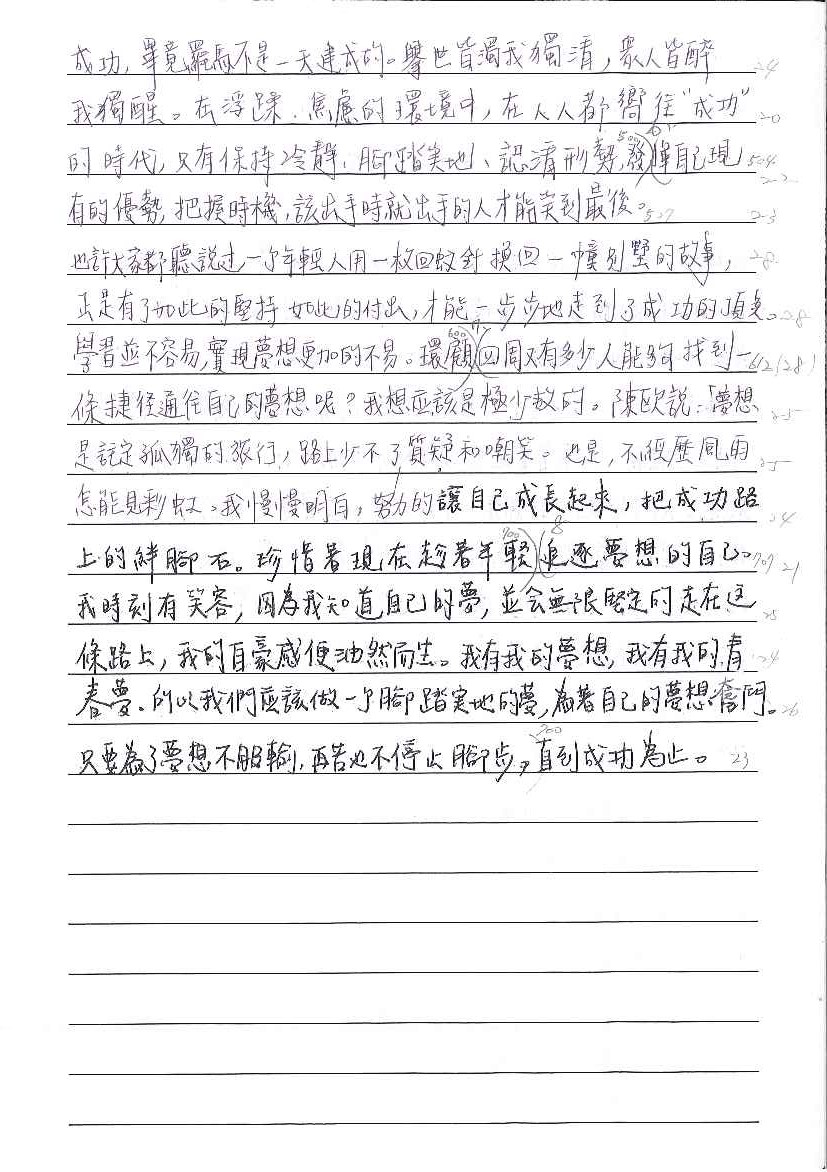 成功，畢竟羅馬不是一天建成的。舉世皆濁我獨清，衆人皆醉 24
我獨醒。在浮躁、焦慮的環境中，在人人都嚮往“成功” 20
的時代，只有保持冷靜、腳踏实地、認清形勢，發揮自己現 504
有的優勢，把握時機，該出手時就出手的人才能笑到最後。 527 23
也許大家都聽說过一个年輕人用一枚回蚊針換回一幢别墅的故事， 28
正是有了如此的堅持如此的付出，才能一步步地走到了成功的頂点。 28
學習並不容易，實現夢想更加的不易。環顧四周又有多少人能夠找到一 612(28)
條捷径通往自己的夢想呢？我想应該是極少数的。陳欧說：「夢想 25
是註定孤獨的旅行，路上少不了質疑和嘲笑。也是，不經歷風雨 25
怎能見彩虹。我慢慢明白，努力的讓自己成長起來，把成功路 24
上的絆腳石。珍惜着現在趁着年輕追逐夢想的自己。 709 21
我時刻有笑容，因為我知道自己的夢，並会無限堅定的走在这 25
條路上，我的自豪感便油然而生。我有我的夢想，我有我的青 24
春夢。所以我們应該做一个腳踏実地的夢，為著自己的夢想奮鬥。 26
只要為了夢想不服輸，再苦也不停止腳步，直到成功為止。 23